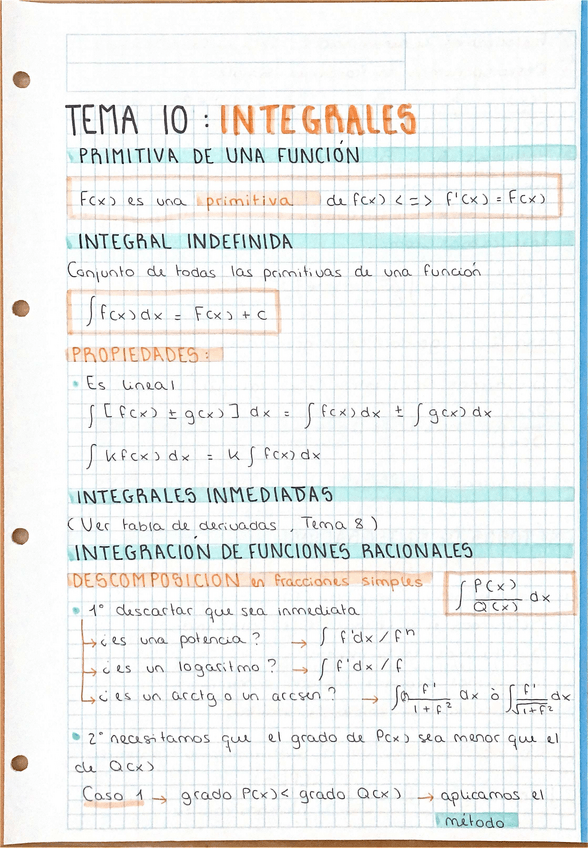 TEMA 10 : INTEGRALES
PRIMITIVA DE UNA FUNCIÓN
F(x) es una primitiva de f(x) <=> f'(x) = F(x)
INTEGRAL INDEFINIDA
Conjunto de todas las primitivas de una función
∫ f(x) dx = F(x) + C
PROPIEDADES:
• Es lineal
∫ [ f(x) ± g(x) ] dx = ∫ f(x) dx ± ∫ g(x) dx
∫ K f(x) dx = K ∫ f(x) dx
INTEGRALES INMEDIATAS
( Ver tabla de derivadas , Tema 8 )
INTEGRACIÓN DE FUNCIONES RACIONALES
DESCOMPOSICION en fracciones simples ∫ P(x)/Q(x) dx
• 1º descartar que sea inmediata
↳ ¿es una potencia? → ∫ f'dx / fⁿ
↳ ¿es un logaritmo? → ∫ f'dx / f
↳ ¿es un arctg o un arcsen? → ∫ f'/1+f² dx ò ∫ f'/√1+f² dx
• 2º necesitamos que el grado de P(x) sea menor que el
de Q(x)
Caso 1 → grado P(x) < grado Q(x) → aplicamos el
método